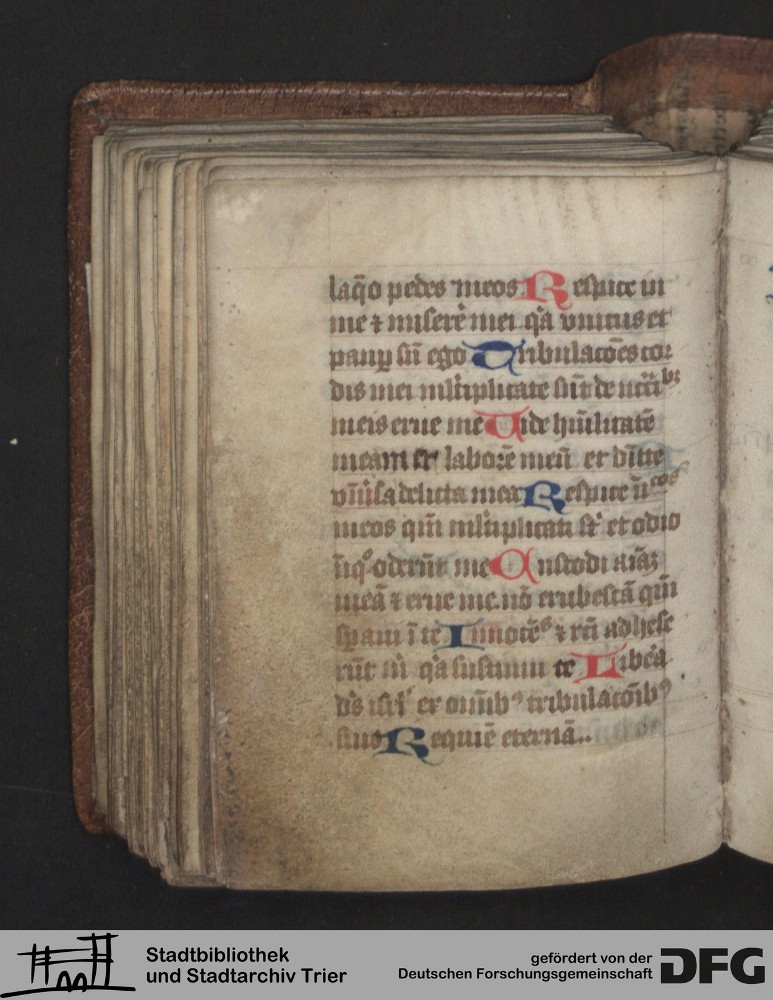 laq̄o pedes meos Respice in
me ⁊ miserē mei q̄a vnicus et
paup sū ego Tribulacōes cor
dis mei mltiplicate sūt de ncc̄ibꝫ
meis erue me Uide hūilitatē
meam et laborē meū et dītte
vnīusa delicta mea Respice īicos
meos qm̄ mltiplicati st et odio
īiqº oderūt me Custodi aīaꝫ
meā ⁊ erue me nō erubescā qm̄
spaui ī te Innocēs ⁊ rcī adhese
rūt m̄ q̄a sustinui te Libēa
ds isrl ex omībꝰ tribulacōibꝰ
suis Requiē eternā..
Stadtbibliothek
und Stadtarchiv Trier
gefördert von der
Deutschen Forschungsgemeinschaft
DFG